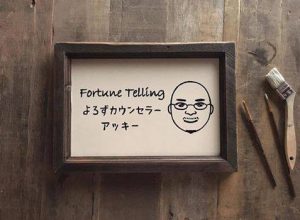 Fortune Telling
よろずカウンセラー
アッキー